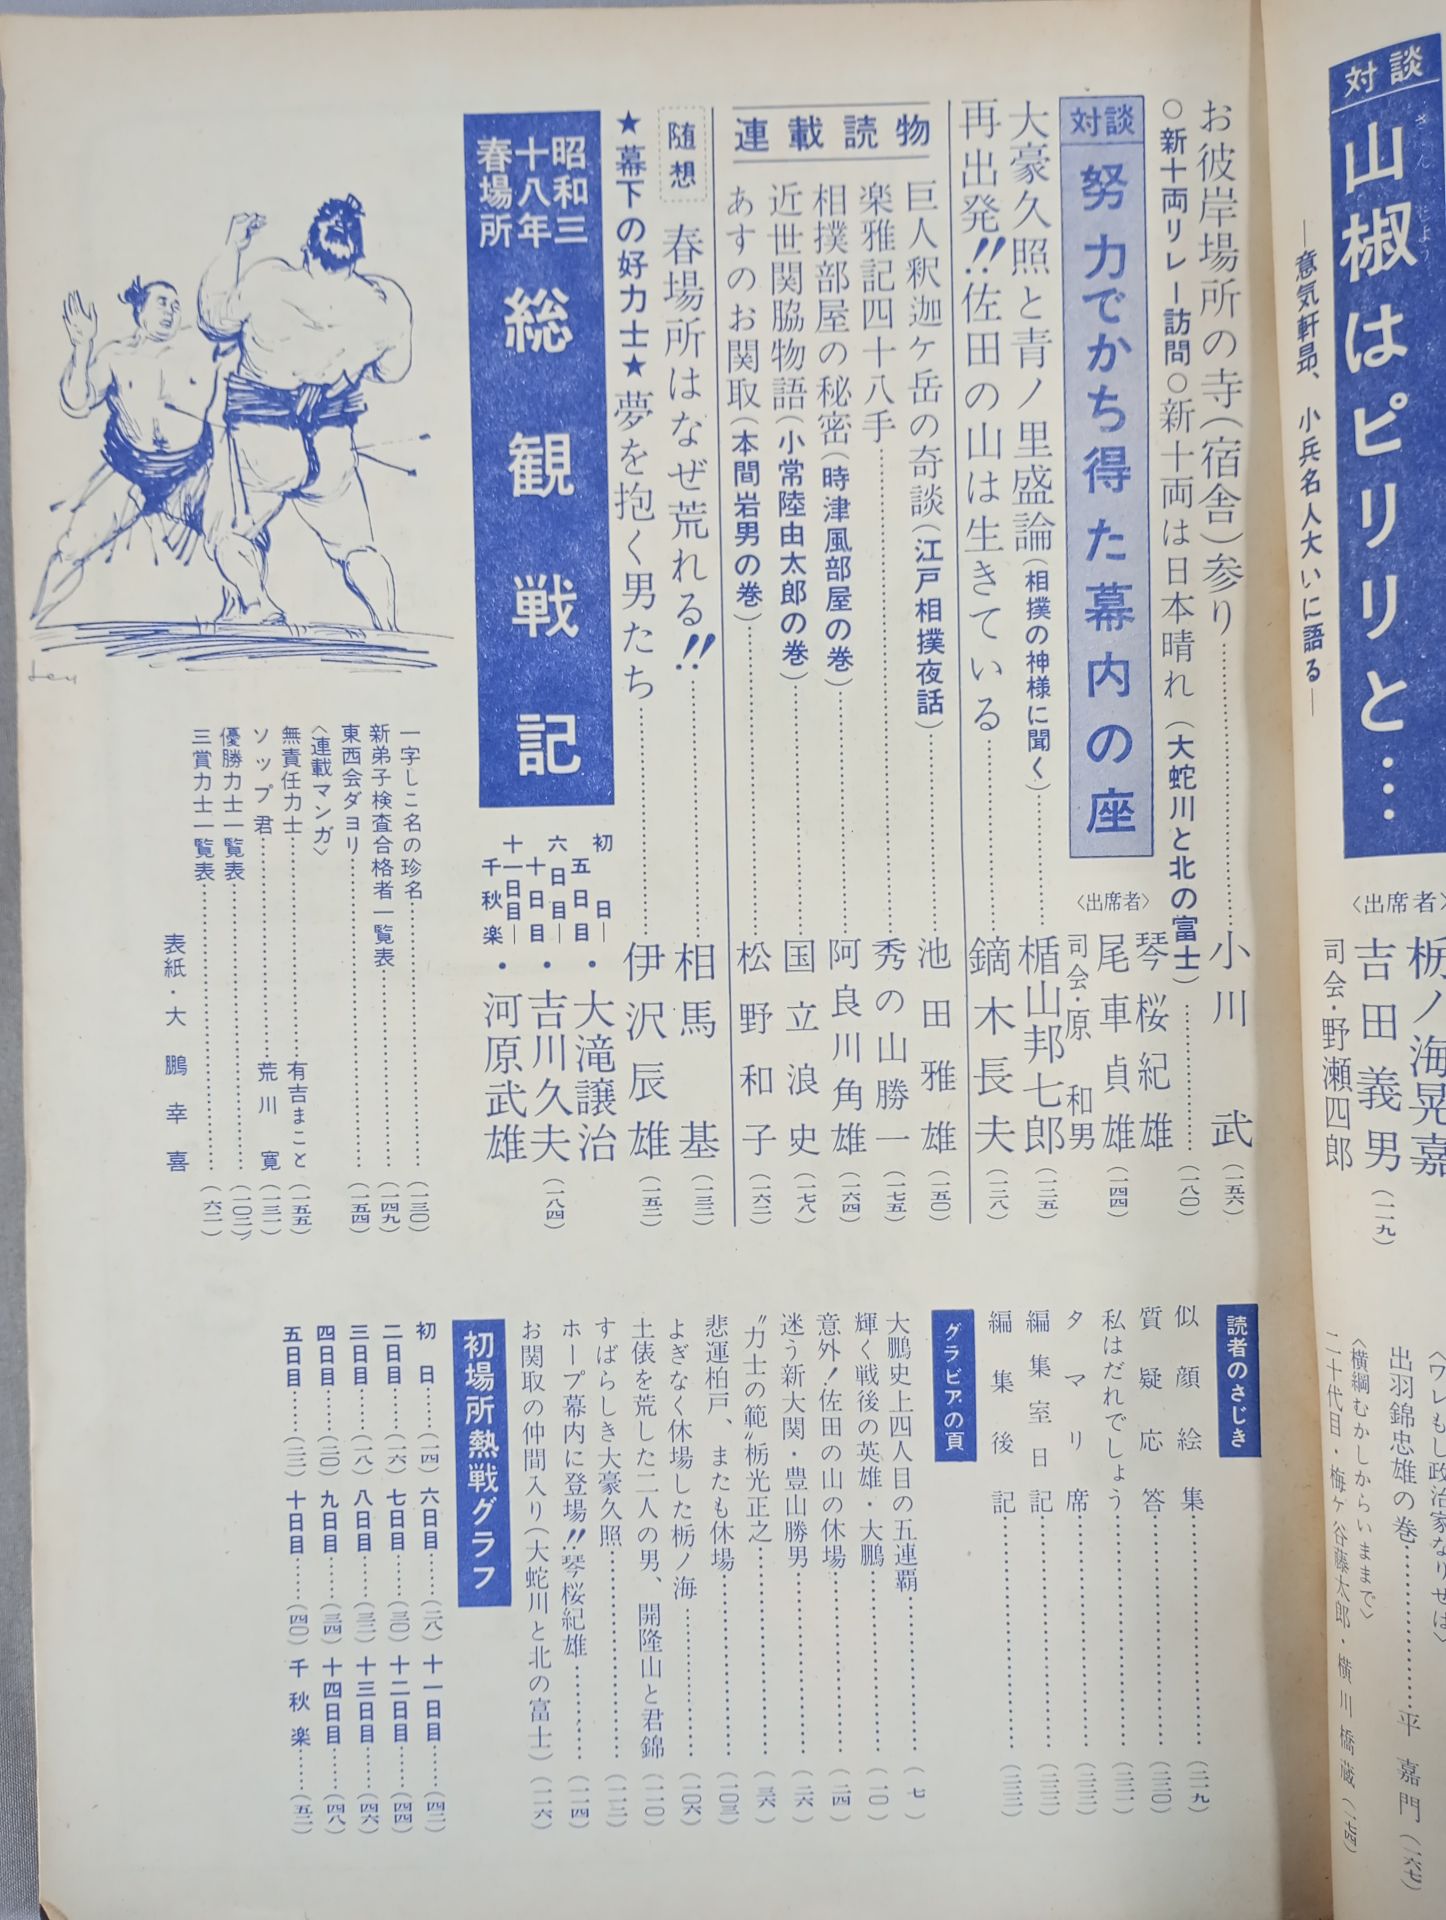 対談
山椒はピリリと…
さんしよう
―意気軒昂、小兵名人大いに語る―
〈出席者〉
栃ノ海晃嘉
吉田義男
司会・野瀬四郎
(一一九)
〈ワレもし政治家なりせば〉
出羽錦忠雄の巻…………平嘉門(一六七)
〈横綱むかしからいままで〉
二十代目・梅ケ谷藤太郎・横川橋蔵(一七四)
お彼岸場所の寺(宿舎)参り…………小川武(一五六)
○新十両リレー訪問○新十両は日本晴れ(大蛇川と北の富士)…………(一八〇)
対談
努力でかち得た幕内の座
〈出席者〉
琴桜紀雄
尾車貞雄
司会・原和男
(一四四)
大豪久照と青ノ里盛論(相撲の神様に聞く)…………楯山邦七郎(一二五)
再出発!!佐田の山は生きている…………鏑木長夫(一二八)
連載読物
巨人釈迦ケ岳の奇談(江戸相撲夜話)…………池田雅雄(一五〇)
楽雅記四十八手…………秀の山勝一(一七五)
相撲部屋の秘密(時津風部屋の巻)…………阿良川角雄(一六四)
近世関脇物語(小常陸由太郎の巻)…………国立浪史(一七八)
あすのお関取(本間岩男の巻)…………松野和子(一六二)
随想
春場所はなぜ荒れる!!…………相馬基(一三二)
★幕下の好力士★夢を抱く男たち…………伊沢辰雄(一五二)
昭和三十八年春場所
総観戦記
初日―五日目・大滝譲治
六日目―十日目・吉川久夫
十一日目―千秋楽・河原武雄
(一八四)
一字しこ名の珍名…………(一三〇)
新弟子検査合格者一覧表…………(一四九)
東西会ダヨリ…………(一五四)
〈連載マンガ〉
無責任力士…………有吉まこと(一五五)
ソップ君…………荒川寛(一三一)
優勝力士一覧表…………(一〇二)
三賞力士一覧表…………(六一)
表紙・大鵬幸喜
読者のさじき
似顔絵集…………(二一九)
質疑応答…………(二二〇)
私はだれでしょう…………(二二一)
タマリ席…………(二二三)
編集室日記…………(二二三)
編集後記…………(二二三)
グラビアの頁
大鵬史上四人目の五連覇…………(七)
輝く戦後の英雄・大鵬…………(一〇)
意外!佐田の山の休場…………(二四)
迷う新大関・豊山勝男…………(二六)
"力士の範"栃光正之…………(三六)
悲運柏戸、またも休場…………(一〇三)
よぎなく休場した栃ノ海…………(一〇六)
土俵を荒した二人の男、開隆山と君錦(一一〇)
すばらしき大豪久照…………(一一二)
ホープ幕内に登場!!琴桜紀雄…………(一一四)
お関取の仲間入り(大蛇川と北の富士)(一一六)
初場所熱戦グラフ
初日……(一四)六日目……(二八)十一日目……(四二)
二日目……(一六)七日目……(三〇)十二日目……(四四)
三日目……(一八)八日目……(三二)十三日目……(四六)
四日目……(二〇)九日目……(三四)十四日目……(四八)
五日目……(二二)十日目……(四〇)千秋楽……(五二)